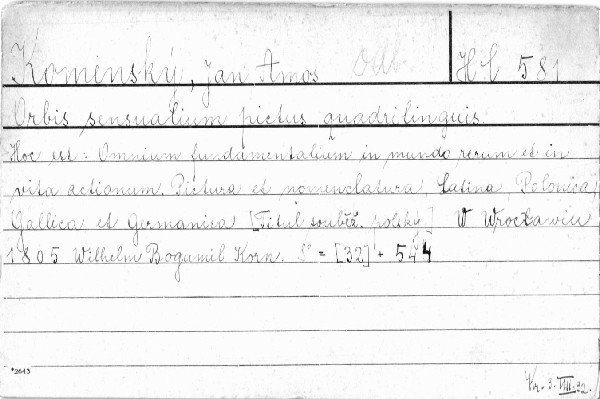 Komenský, Jan Amos Odb. H C 581
Orbis sensualium pictus quadrilinguis.
Hoc est: Omnium fundamentalium in mundo rerum et in
vita actionum. Pictura et nomenclatura, Latina, Polonica,
Gallica et Germanica [Titul souběž. polský] W Wrocławiu
1805 Wilhelm Bogumil Korn. 8° = [32] + 544
*2613
Kr. 3. VIII. 32.